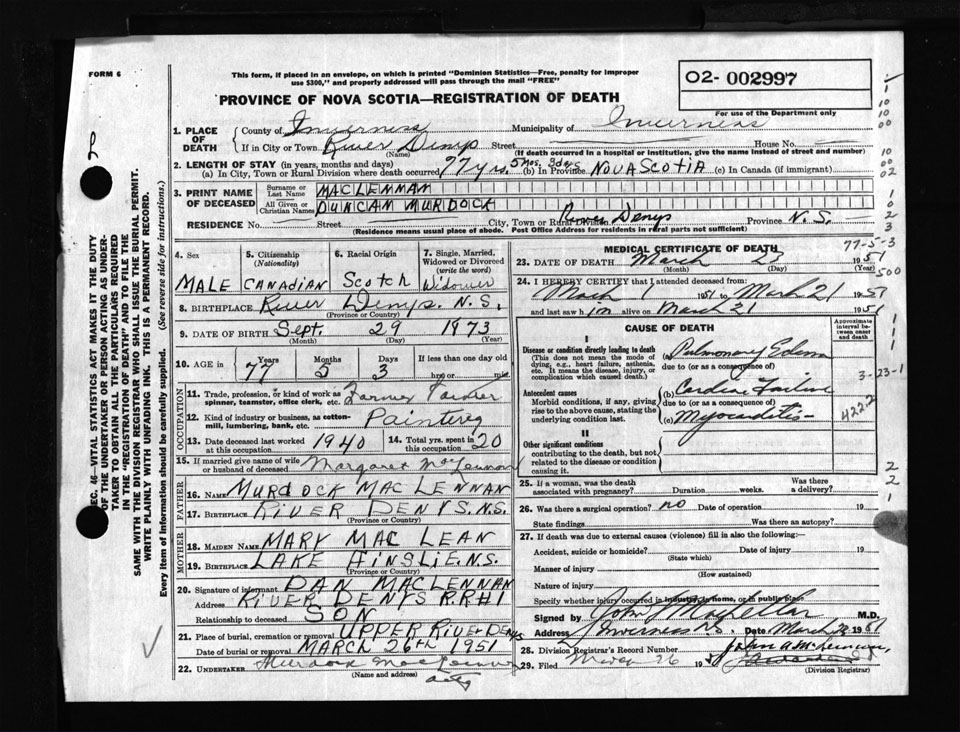 FORM 6
This form, if placed in an envelope, on which is printed "Dominion Statistics—Free, penalty for improper
use $300," and properly addressed will pass through the mail "FREE"
02-002997
For use of the Department only
PROVINCE OF NOVA SCOTIA—REGISTRATION OF DEATH
1. PLACE OF DEATH
County of Inverness Municipality of Inverness
If in City or Town River Denys Street House No.
(Name) (If death occurred in a hospital or institution, give the name instead of street and number)
2. LENGTH OF STAY (in years, months and days)
(a) In City, Town or Rural Division where death occurred 77 yrs. 5 mos. 3 days (b) In Province NOVA SCOTIA (c) In Canada (if immigrant)
3. PRINT NAME OF DECEASED
Surname or Last Name MACLENNAN
All Given or Christian Names DUNCAN MURDOCK
RESIDENCE No. Street City, Town or Rural Division River Denys Province N.S.
(Residence means usual place of abode. Post Office Address for residents in rural parts not sufficient)
4. Sex
MALE
5. Citizenship
(Nationality)
CANADIAN
6. Racial Origin
Scotch
7. Single, Married,
Widowed or Divorced
(write the word)
Widower
8. BIRTHPLACE River Denys. N.S.
(Province or Country)
9. DATE OF BIRTH Sept. 29 1873
(Month) (Day) (Year)
10. AGE in
Years Months Days If less than one day old
77 5 3 hrs or min.
OCCUPATION
11. Trade, profession, or kind of work as
spinner, teamster, office clerk, etc. Farmer Painter
12. Kind of industry or business, as cotton-
mill, lumbering, bank, etc. Painting
13. Date deceased last worked
at this occupation 1940
14. Total yrs. spent in 20
15. If married give name of wife
or husband of deceased Margaret MacLennan
FATHER
16. NAME MURDOCK MAC LENNAN
17. BIRTHPLACE RIVER DENYS. N.S.
(Province or Country)
MOTHER
18. MAIDEN NAME MARY MAC LEAN
19. BIRTHPLACE LAKE AINSLIE N.S.
(Province or Country)
20. Signature of informant DAN MACLENNAN
Address RIVER DENYS R.R#1
Relationship to deceased SON
21. Place of burial, cremation or removal UPPER RIVER DENYS
Date of burial or removal MARCH 26TH 1951
22. UNDERTAKER Murdock MacLennan
(Name and address)
MEDICAL CERTIFICATE OF DEATH
77-5-3
23. DATE OF DEATH March 23 1951
(Month) (Day) (Year)
24. I HEREBY CERTIFY that I attended deceased from:
March 1 1951 to March 21 1951
and last saw him alive on March 21 1951
CAUSE OF DEATH
Approximate
interval between
onset and
death
I
Disease or condition directly leading to death
(This does not mean the mode of
dying, e.g., heart failure, asthenia,
etc. It means the disease, injury, or
complication which caused death.)
(a) Pulmonary Edema
due to (or as a consequence of)
3-23-1
Antecedent causes
Morbid conditions, if any, giving
rise to the above cause, stating the
underlying condition last.
(b) Cardiac Failure
due to (or as a consequence of)
(c) Myocarditis
4222
II
Other significant conditions
contributing to the death, but not
related to the disease or condition
causing it.
25. If a woman, was the death
associated with pregnancy? Duration weeks. Was there
a delivery?
26. Was there a surgical operation? no Date of operation 19
State findings Was there an autopsy?
27. If death was due to external causes (violence) fill in also the following:—
Accident, suicide or homicide? Date of injury 19
(State which)
Manner of injury
(How sustained)
Nature of injury
Specify whether injury occurred in industry, in home, or in public place
Signed by John M.D.
Address Inverness N.S. Date March 1951
28. Division Registrar's Record Number
29. Filed March 26 1951
(Division Registrar)
SEC. 46—VITAL STATISTICS ACT MAKES IT THE DUTY
OF THE UNDERTAKER OR PERSON ACTING AS UNDER-
TAKER TO OBTAIN ALL THE PARTICULARS REQUIRED
IN THE "REGISTRATION OF DEATH" AND TO FILE THE
SAME WITH THE DIVISION REGISTRAR WHO SHALL ISSUE THE BURIAL PERMIT.
WRITE PLAINLY WITH UNFADING INK. THIS IS A PERMANENT RECORD.
Every item of information should be carefully supplied. (See reverse side for instructions.)